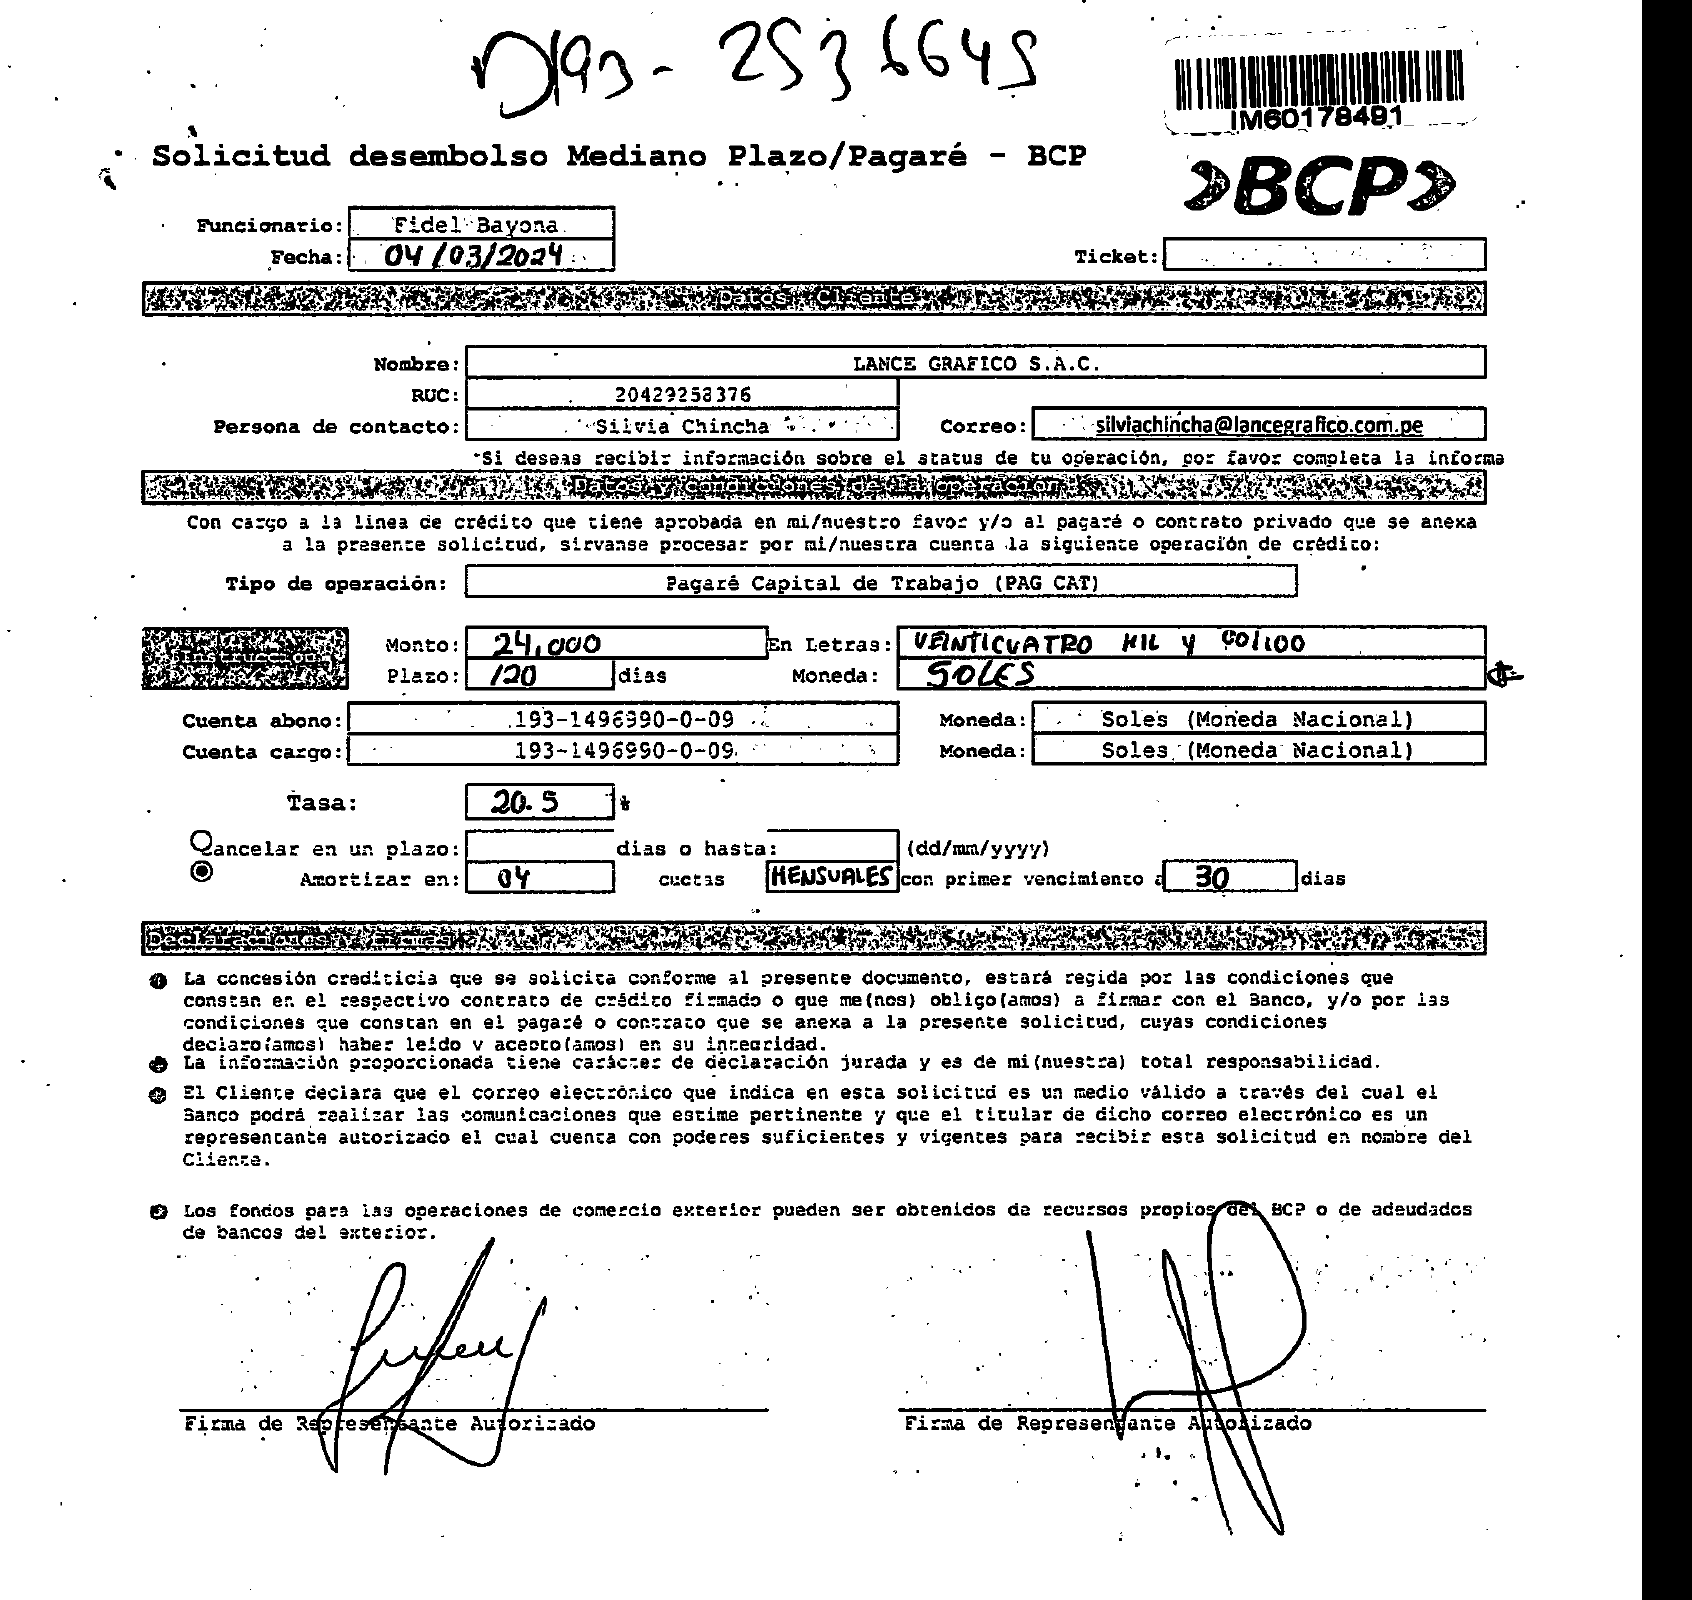 D193-2536645
IM60178491
Solicitud desembolso Mediano Plazo/Pagaré - BCP
BCP
Funcionario: Fidel Bayona
Fecha: 04/03/2024 Ticket:
Datos Cliente
Nombre: LANCE GRAFICO S.A.C.
RUC: 20429258376
Persona de contacto: Silvia Chincha Correo: silviachincha@lancegrafico.com.pe
*Si deseas recibir información sobre el status de tu operación, por favor completa la informa
Datos y condiciones de la operación
Con cargo a la linea de crédito que tiene aprobada en mi/nuestro favor y/o al pagaré o contrato privado que se anexa
a la presente solicitud, sirvanse procesar por mi/nuestra cuenta la siguiente operación de crédito:
Tipo de operación: Pagaré Capital de Trabajo (PAG CAT)
Instrucción
Monto: 24,000 En Letras: VEINTICUATRO MIL Y 00/100
Plazo: 120 días Moneda: SOLES
Cuenta abono: 193-1496990-0-09 Moneda: Soles (Moneda Nacional)
Cuenta cargo: 193-1496990-0-09 Moneda: Soles (Moneda Nacional)
Tasa: 20.5 %
Cancelar en un plazo: dias o hasta: (dd/mm/yyyy)
Amortizar en: 04 cuotas MENSUALES con primer vencimiento a 30 dias
Declaraciones y firmas
La concesión crediticia que se solicita conforme al presente documento, estará regida por las condiciones que
constan en el respectivo contrato de crédito firmado o que me(nos) obligo(amos) a firmar con el Banco, y/o por las
condiciones que constan en el pagaré o contrato que se anexa a la presente solicitud, cuyas condiciones
declaro(amos) haber leído y acepto(amos) en su integridad.
La información proporcionada tiene carácter de declaración jurada y es de mi(nuestra) total responsabilidad.
El Cliente declara que el correo electrónico que indica en esta solicitud es un medio válido a través del cual el
Banco podrá realizar las comunicaciones que estime pertinente y que el titular de dicho correo electrónico es un
representante autorizado el cual cuenta con poderes suficientes y vigentes para recibir esta solicitud en nombre del
Cliente.
Los fondos para las operaciones de comercio exterior pueden ser obtenidos de recursos propios del BCP o de adeudados
de bancos del exterior.
Firma de Representante Autorizado Firma de Representante Autorizado